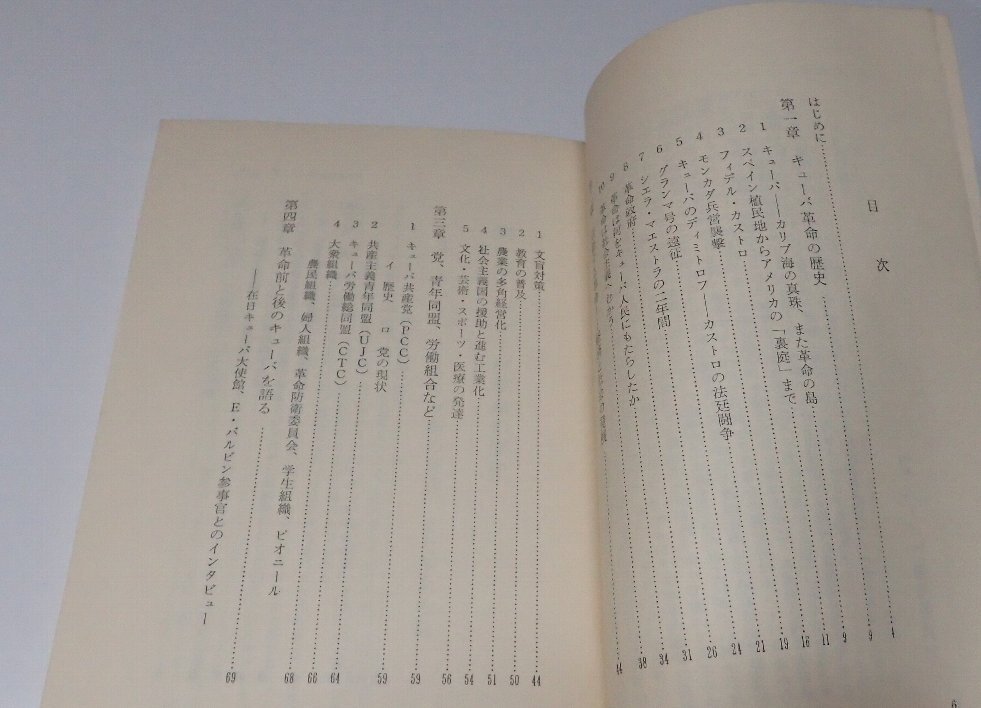 目　次
はじめに……4
第一章　キューバ革命の歴史……9
1　キューバ――カリブ海の真珠、また革命の島……9
2　スペイン植民地からアメリカの「裏庭」まで……11
3　フィデル・カストロ……16
4　モンカダ兵営襲撃……19
5　キューバのディミトロフ――カストロの法廷闘争……21
6　グランマ号の遠征……24
7　シエラ・マエストラの二年間……26
8　革命政府……31
9　革命は何をキューバ人民にもたらしたか……34
10　……38
44
1　文盲対策……44
2　教育の普及……50
3　農業の多角経営化……51
4　社会主義国の援助と進む工業化……54
5　文化・芸術・スポーツ・医療の発達……56
第三章　党、青年同盟、労働組合など……59
1　キューバ共産党（PCC）……59
イ　歴史　ロ　党の現状
2　共産主義青年同盟（UJC）
3　キューバ労働総同盟（CTC）……64
4　大衆組織……66
農民組織、婦人組織、革命防衛委員会、学生組織、ピオニール
第四章　革命前と後のキューバを語る……69
――在日キューバ大使館、E・バルビン参事官とのインタビュー
6